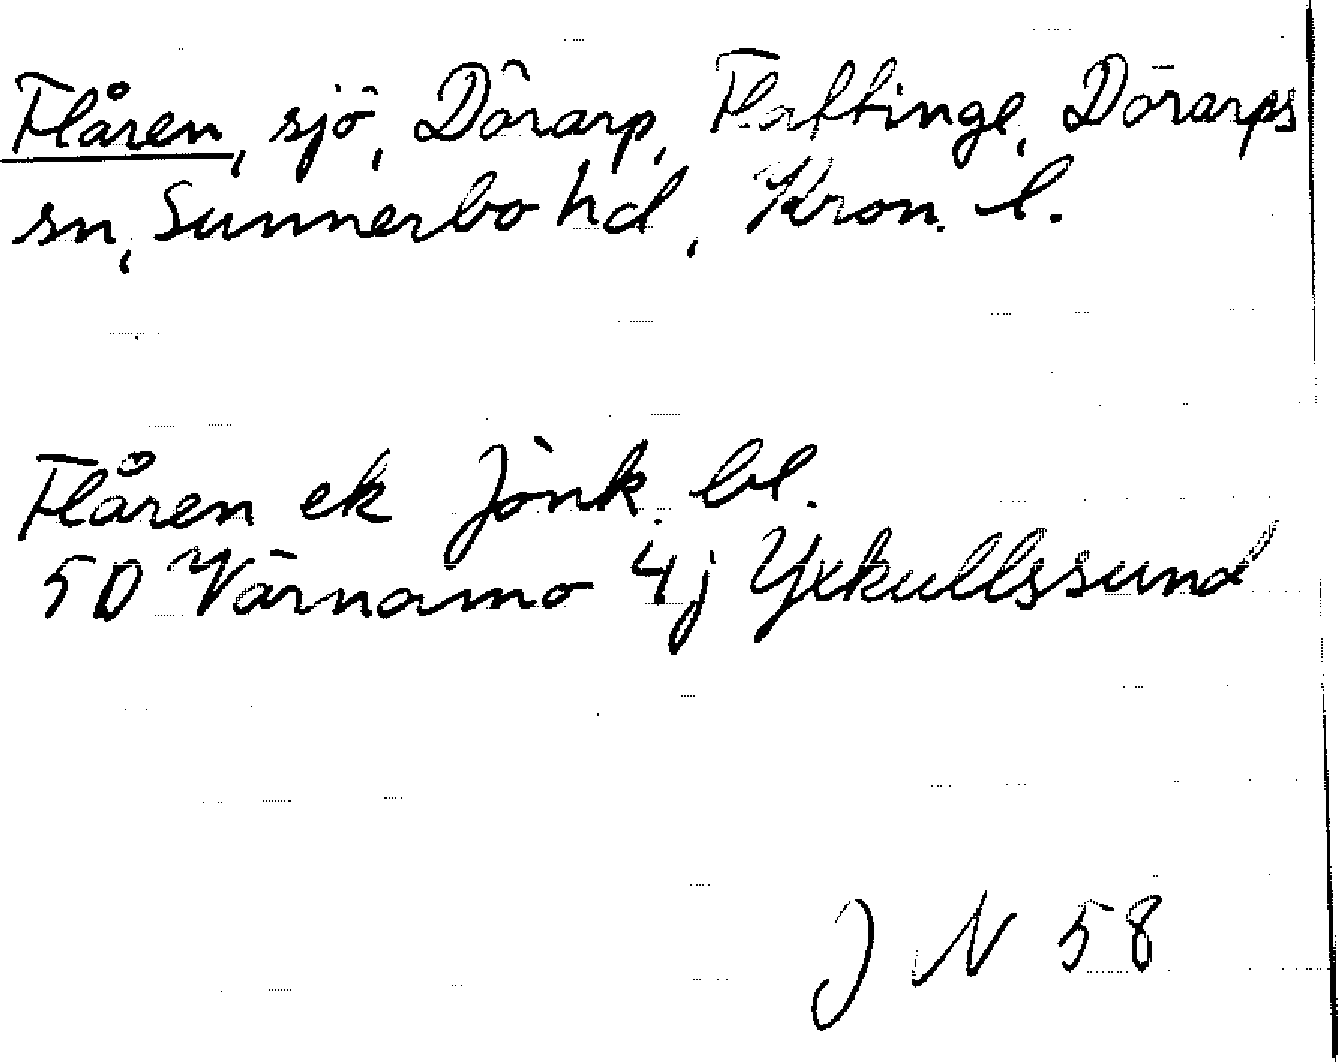 Flåren, sjö, Dörarp, Flattinge, Dörarps
sn, Sunnerbo hd, Kron. l.
Flåren ek Jönk. bl.
5D Värnamo 4j Yxkullssund
J N 58